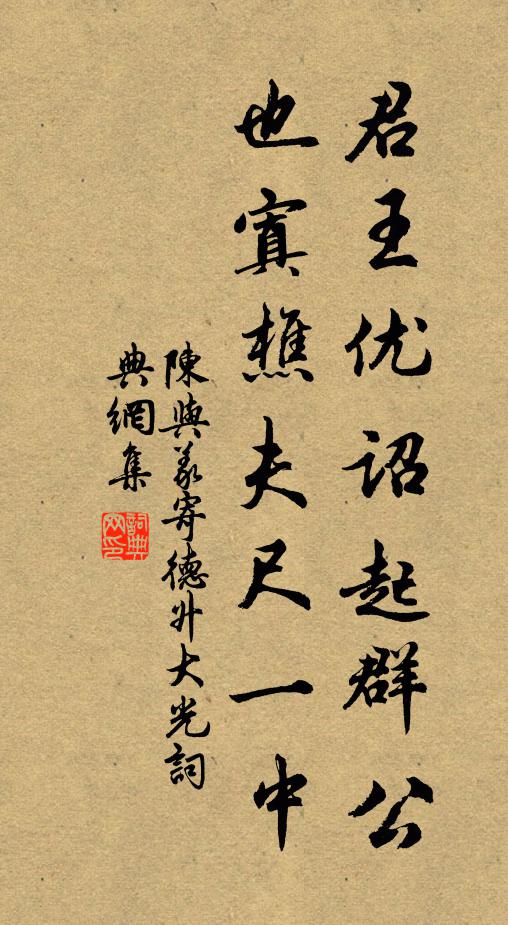 君王优詔起群公
也寘樵夫尺一中
陳與義寄德升大光詞
典網集
詞典网印